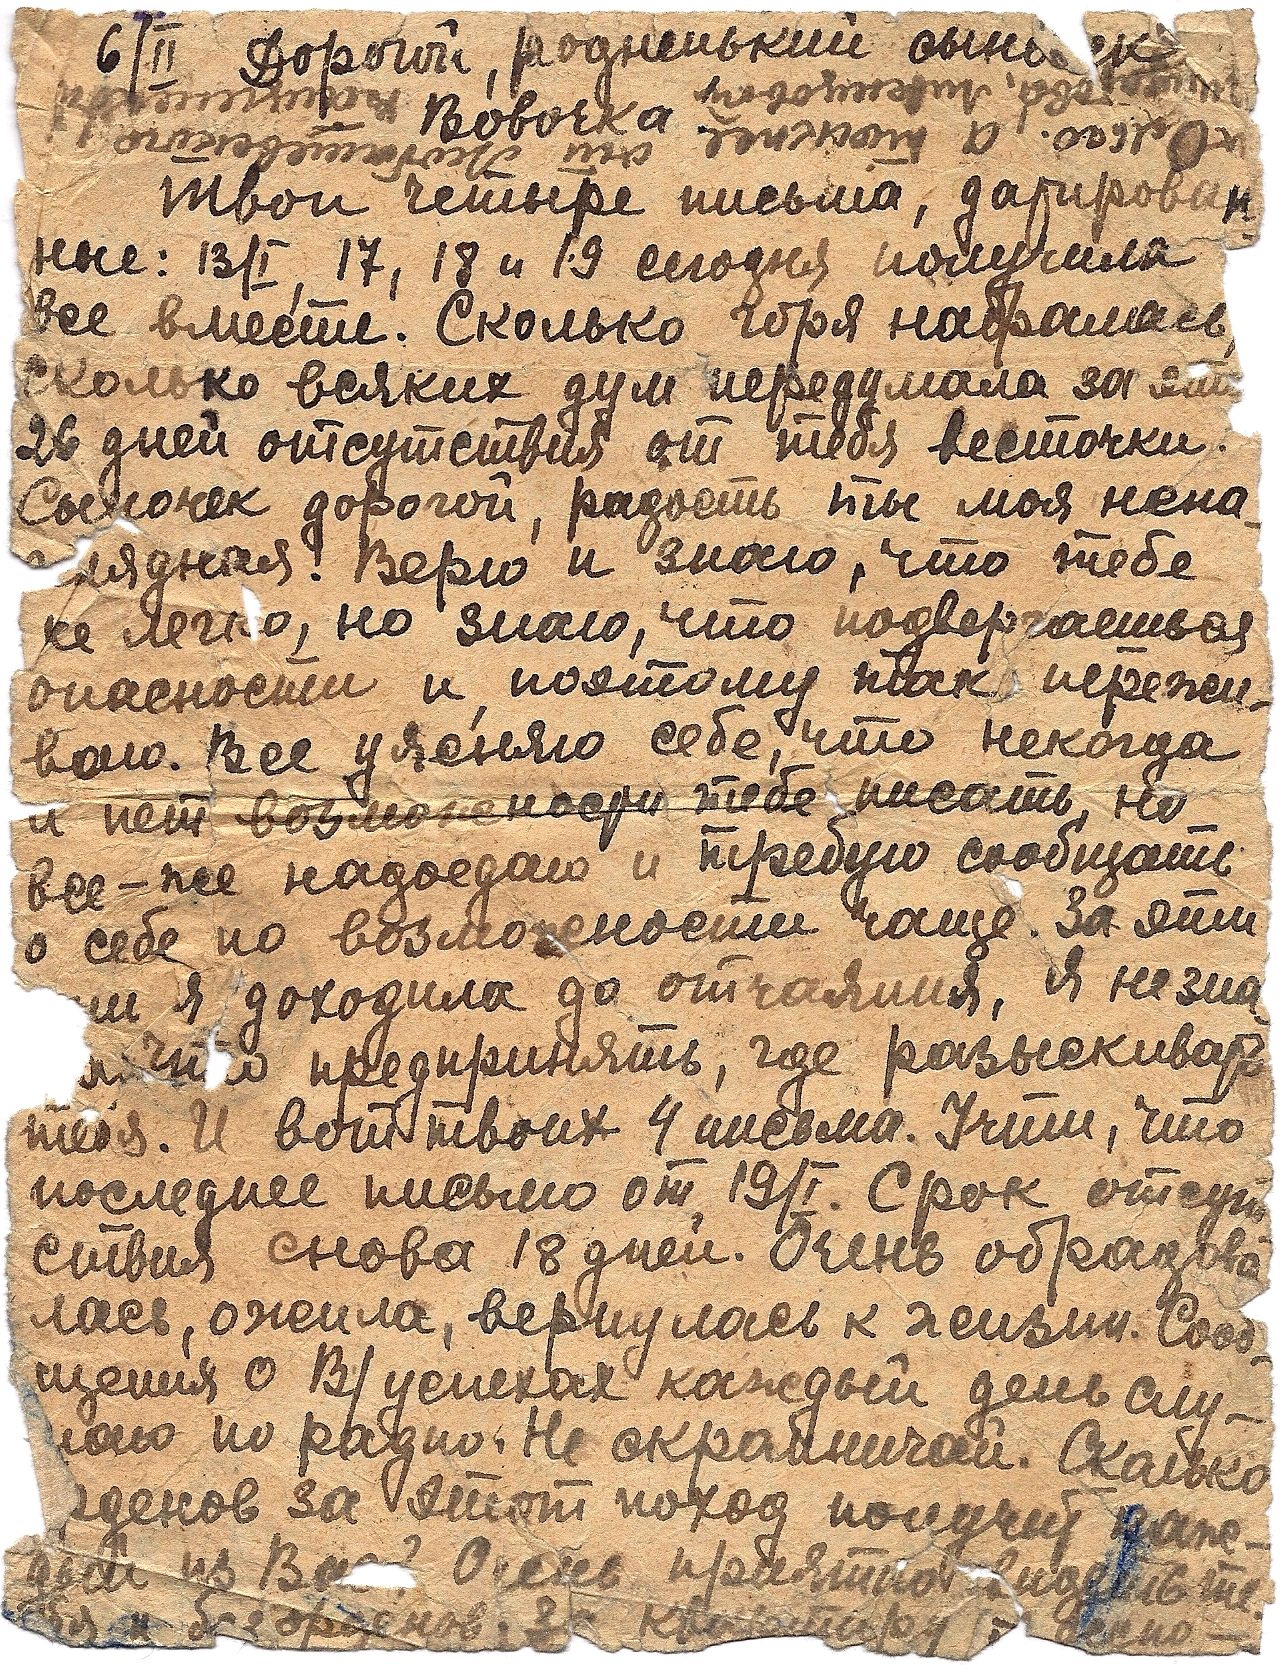 6/II Дорогой, родненький сыночек
Вовочка.
Твои четыре письма, датирован
ные: 13/I, 17, 18 и 19 сегодня получила
все вместе. Сколько горя набралась,
сколько всяких дум передумала за эти
26 дней отсутствия от тебя весточки.
Сыночек дорогой, радость ты моя нена-
глядная! Верю и знаю, что тебе
не легко, но знаю, что подвергаешься
опасности и поэтому так пережи-
ваю. Все уясняю себе, что некогда
и нет возможности тебе писать, но
все-же надоедаю и требую сообщать
о себе по возможности чаще. За эти
дни я доходила до отчаяния, я незна-
ла что предпринять, где разыскивать
тебя. И вот твоих 4 письма. Учти, что
последнее письмо от 19/I. Срок отсут
ствия снова 18 дней. Очень обрадова
лась, ожила, вернулась к жизни. Сооб-
щения о В/успехах каждый день слу-
шаю по радио. Не скромничай. Сколько
орденов за этот поход получит каж-
дый из Вас? Очень приятно видеть те-
бя и без орденов. За квартиру я